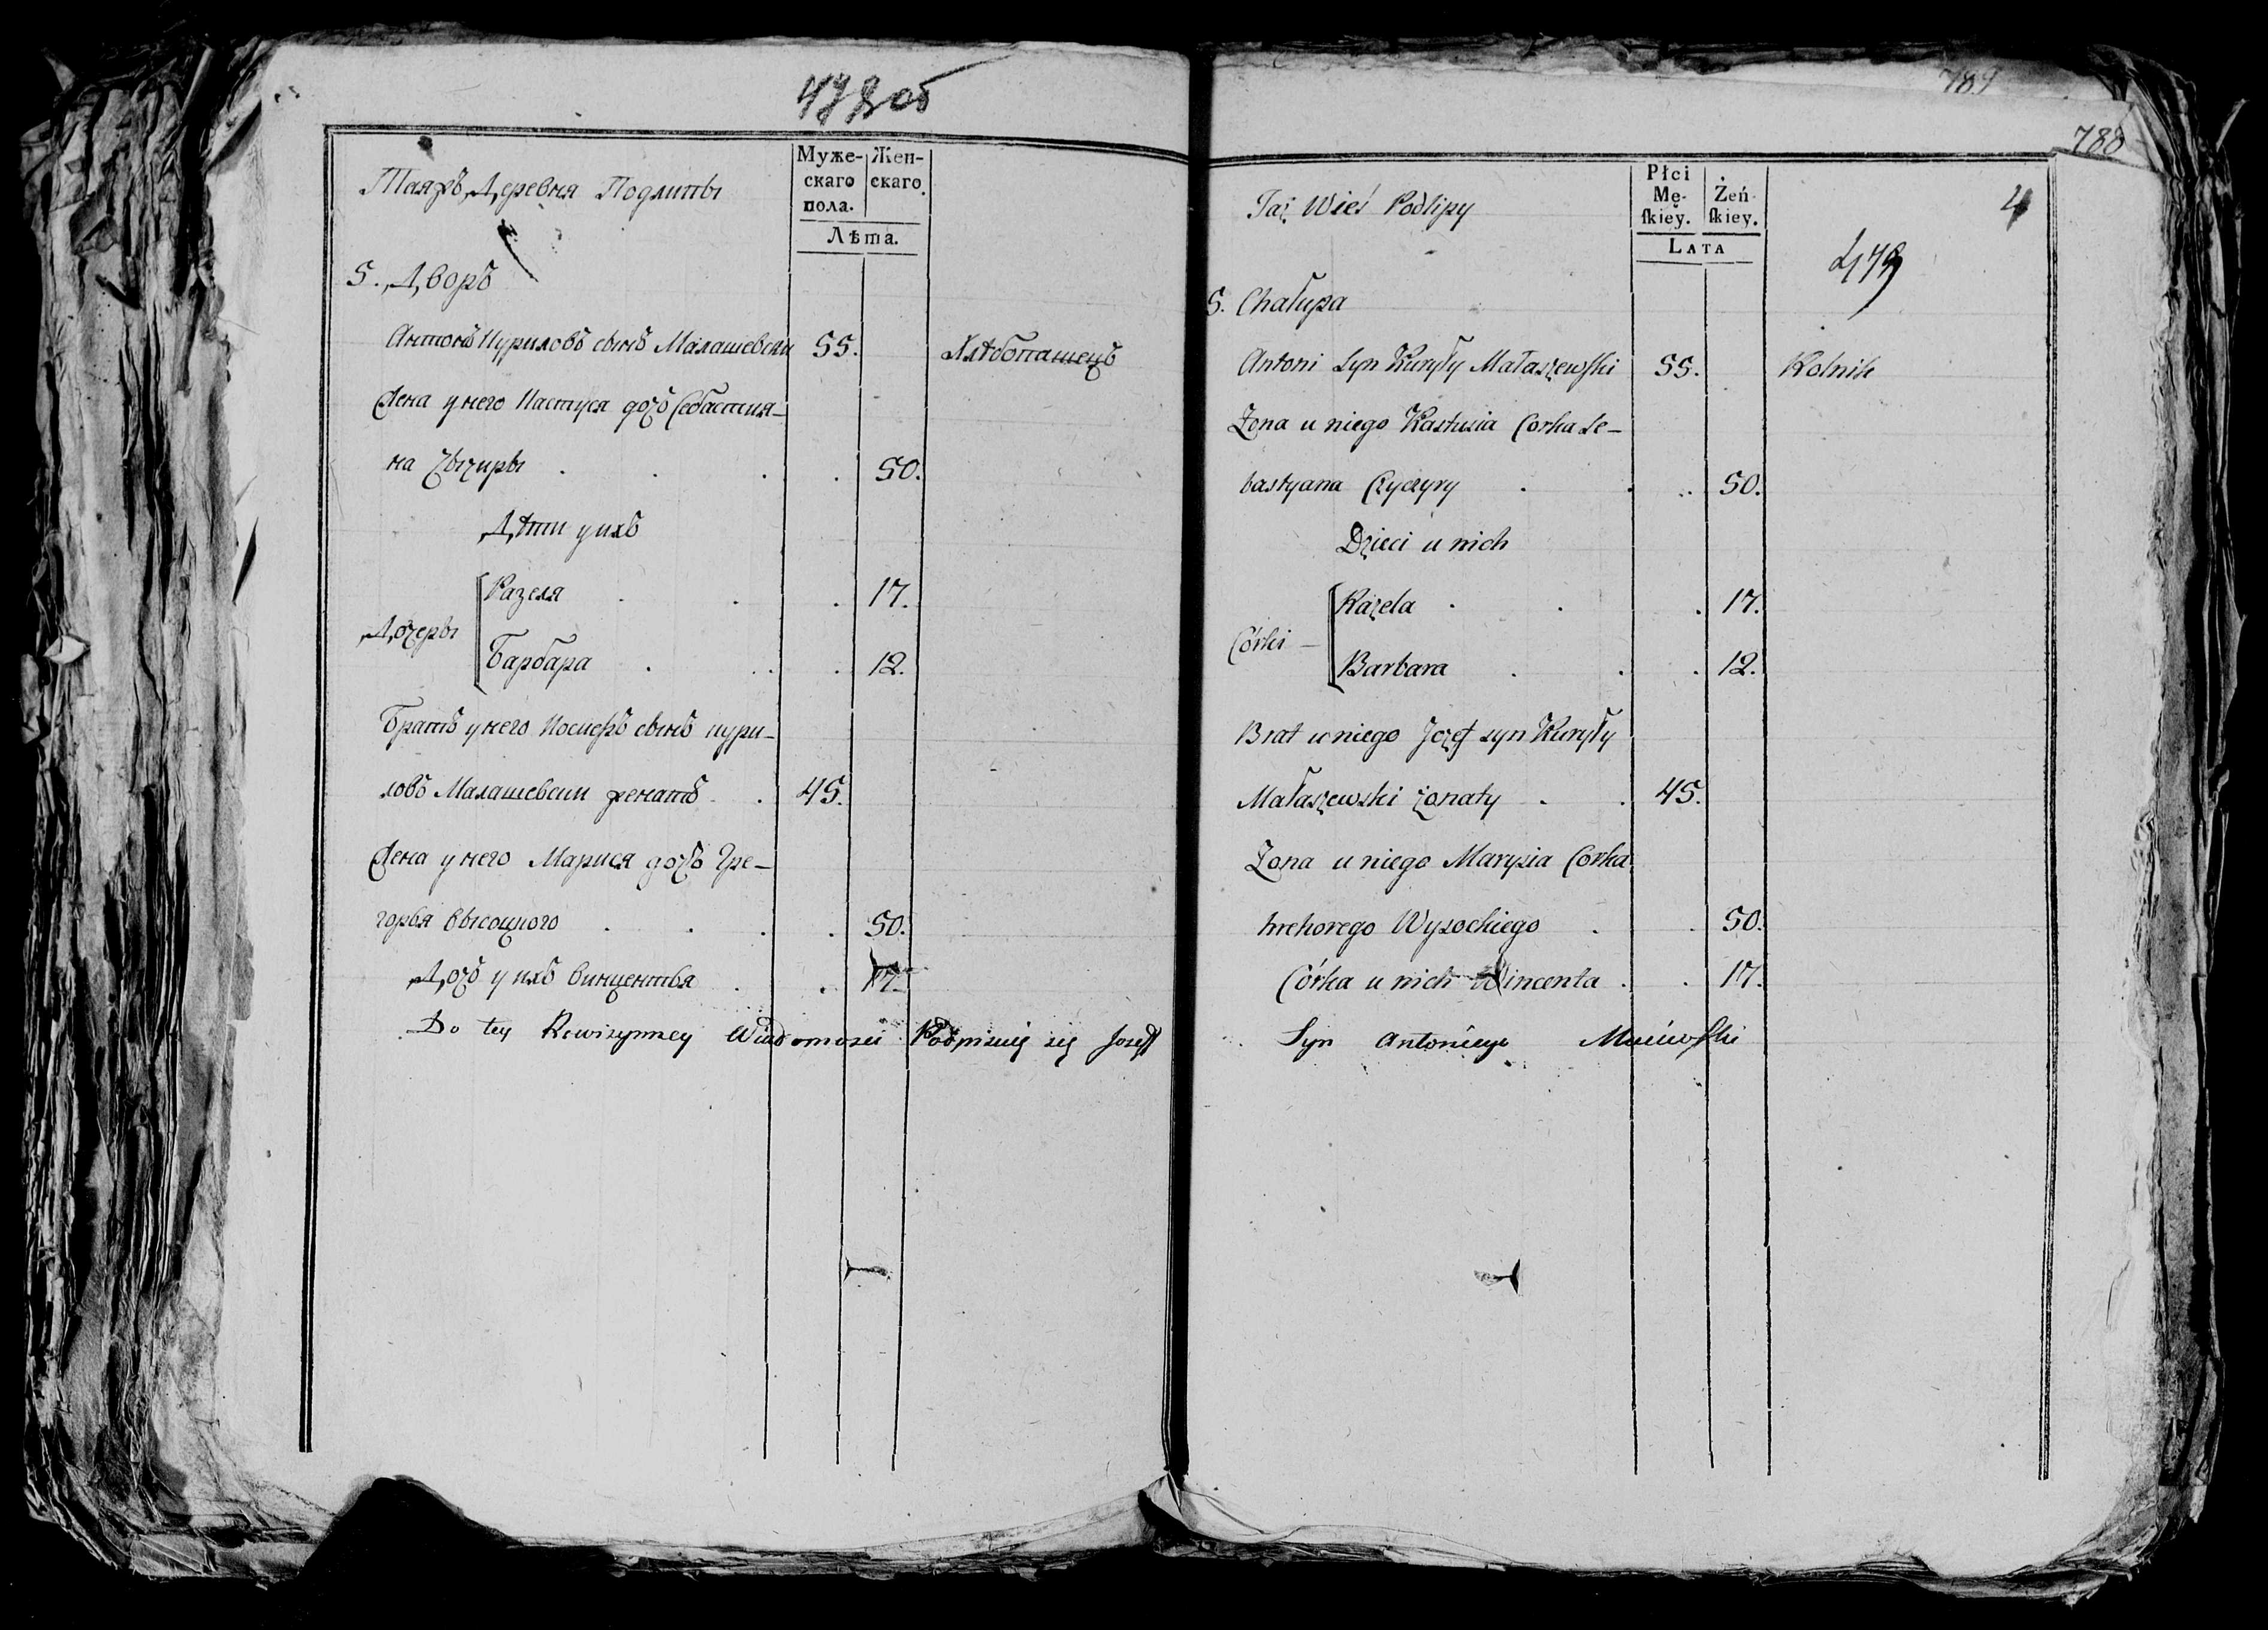 478 об
Таяжъ Деревня Подлипы
Муже-
скаго
пола.
Жен-
скаго
Лѣта.
5. Дворъ
Антонъ Куриловъ сынъ Малашевски 55. Хлѣбопашецъ
Жена у него Кастуся дочь Себастия-
на Чычиры . . . . 50.
Дѣти у ихъ
Дочеры
Разеля . . . 17.
Барбара . . . 12.
Братъ у него Иосиефъ сынъ кури-
ловъ Малашевски женатъ . . 45.
Жена у него Марися дочь Гре-
горья высоцкого . . . . 50.
Дочь у ихъ винцентья . . 17.
Do tey Rewizynney Wiadomosci Podpisuię się Jozeff
789
788
4
479
Taż Wieś Podlipy
Płci
Mę-
ſkiey.
Żeń-
ſkiey.
LATA
5. Chałupa
Antoni Syn Kuryły Małaszewſki 55. Rolnik
Zona u niego Kastusia Corka Se-
bastyana Czyczyry . . . 50.
Dzieci u nich
Córki —
Razela . . . 17.
Barbara . . . 12.
Brat u niego Jozef syn Kuryły
Małaszewski żonaty . . 45.
Zona u niego Marysia Corka
hrehorego Wysockiego . . 50.
Córka u nich Wincenta . . 17.
Syn Antoniego